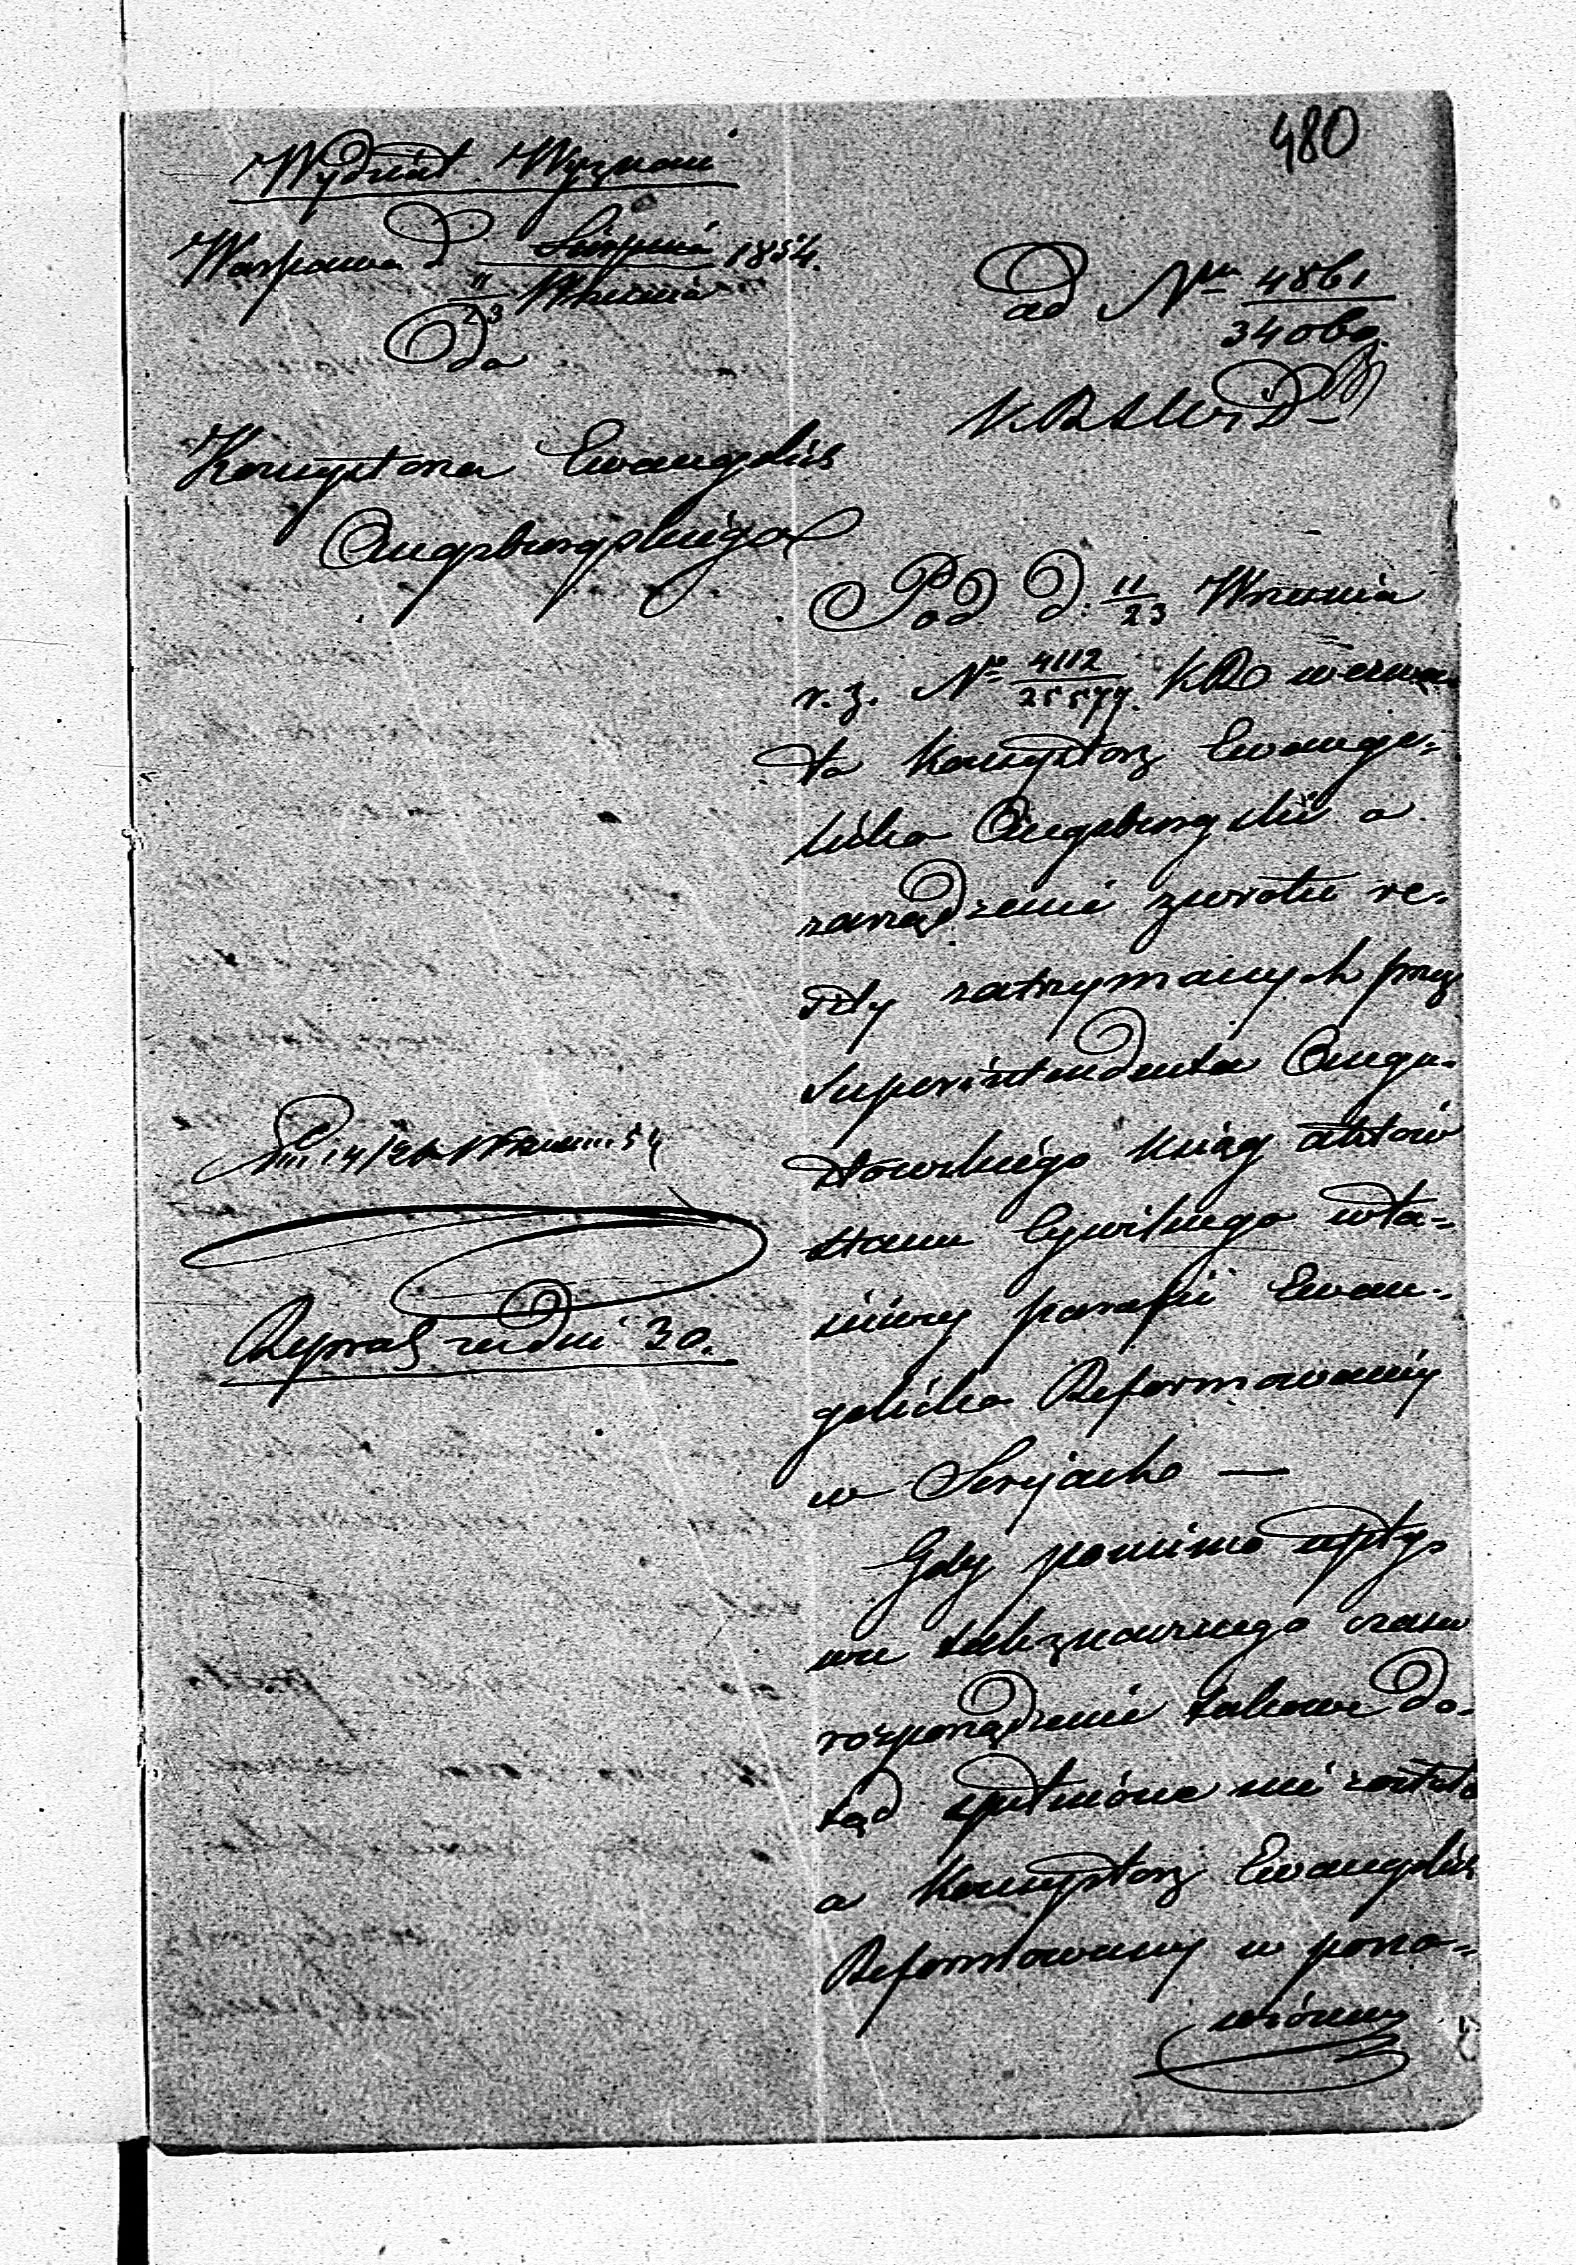 480
Wydział Wyznań
Warszawa d. Sierpnia 1854.
11/23 Września
Do
Konsystorza Ewangelics
Augsburgskiégo
ad Nrm 4861/34060.
Pod d. 11/23 Września
r. z. No 4112/25577. KR wezwa
ła Konsystorz Ewange-
licko Augsburgski o
zarządzenie zwrotu re-
szty zatrzymanych przez
Superintendenta Augu-
stowskiégo Ksiąg aktów
stanu Cywilnego wła-
ściwey parafii Ewan-
gelicko Reformowaney
w Serejach —
Gdy pomimo upły-
wu tak znacznego czasu
rozporządzenie takowe do-
tąd spełnione nie zostało
a Konsystorz Ewangelics
Reformowany w pono-
wioney
14/26 Września 54
Reprod: za dni 30.